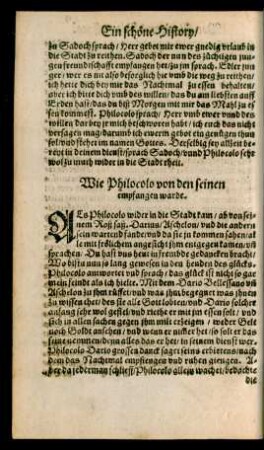 Ein schöne History/
zu Sadoch sprach/ Herr gebet mir ewer gnedig vrlaub in
die Stadt zu reithen. Sadoch der nun des züchtigen jun-
gen freundschafft empfangen het zu jm sprach. Edler jun-
ger/ wer es nit also besorglich hie vmb die weg zu reithen/
ich hette dich bey mir das Nachtmal zu essen behalten/
aber ich bitte dich vmb des willen/ das du am liebsten auff
Erden hast/ das du biß Morgen mit mir das Mahl zu es-
sen kommest. Philocolo sprach: Herr vmb ewer vnnd des
willen/ bey dem jr mich beschworen habt/ ich euch das nicht
versagen mag/ darumb ich ewerm gebot ein genügen thun
sol/ vnd stehet im namen Gottes. Derselbig sey allzeit be-
reyt in deinem dienst/ sprach Sadoch/ vnnd Philocolo sehr
wol zu muth wider in die Stadt rheit.
Wie Philocolo von den seinen
empfangen wardt.
ALs Philocolo wider in die Stadt kam/ ab von sei-
nem Roß saß. Darius/ Aschelon/ vnd die andern
sein wartend stunden/ vnd da sie jn kommen sahen/ al-
le mit frölichem angesicht jhm entgegen kamen/ vñ
sprachen. Du hast vns hent in frembde gedancken bracht/
Wo bistu nun so lang gewesen/ in den henden des glücks.
Philocolo antwortet vnd sprach/ das glück ist nicht so gar
mein feindt als ich hielte. Mit dem Dario Bellessano vñ
Aschelon zu jhm rüffet/ vnd was jhm begegnet was jhnen
zu wissen thet/ des sie alle Gott lobten/ vnd Dario solcher
anfang sehr wol gefiel/ vnd riethe er mit jm essen solt/ vnd
sich in allen sachen gegen jhm mit erzeigen/ weder Gelt
noch Goldt ansehen/ vnd wenn er nüscher het/ so solt er das
seine nemmen/ denn alles das er het/ in seinem dienst wer.
Philocolo Dario grossen danck saget seins erbietens/ nach
dem das Nachtmal empfiengen vnd ruhen giengen. A-
ber da jederman schlieff/ Philocolo allein wachet/ bedachte
die